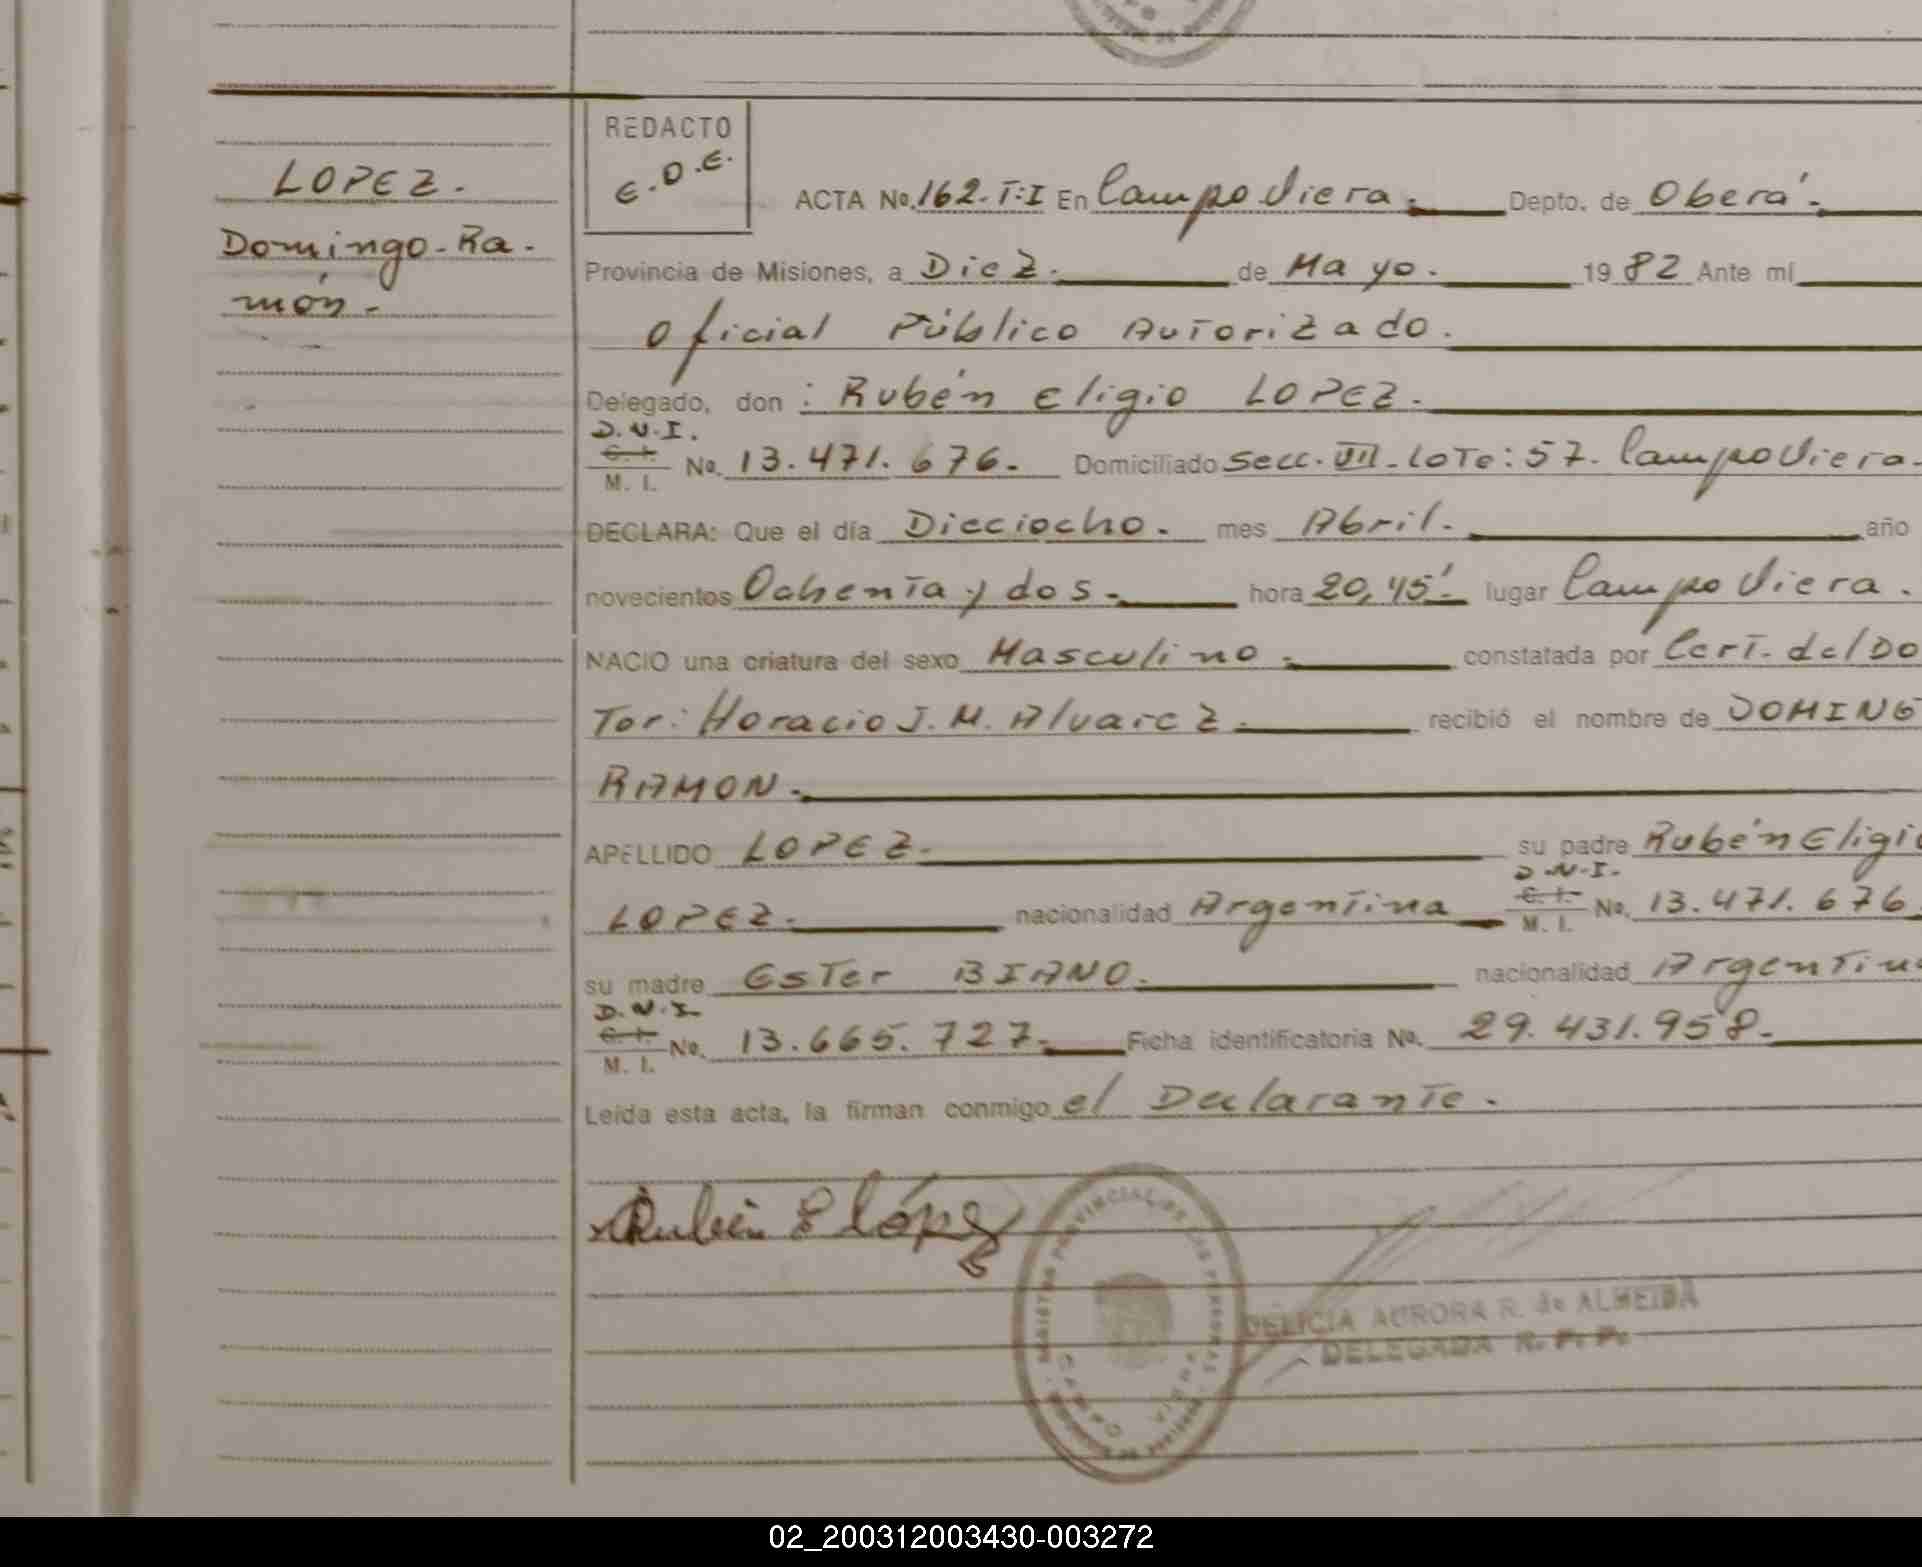 REDACTO
E.O.E.
LOPEZ.
Domingo-Ra-
món.-
ACTA No. 162.T:I En Campo Viera. Depto. de Oberá.
Provincia de Misiones, a Diez. de Mayo. 19 82 Ante mí
Oficial Público Autorizado.
Delegado, don : Rubén Eligio LOPEZ.
D.N.I.
C. I.
M. I. No. 13.471.676. Domiciliado Secc. VII. Lote: 57. Campo Viera.
DECLARA: Que el día Dieciocho. mes Abril. año
novecientos Ochenta y dos. hora 20,45' lugar Campo Viera.
NACIO una criatura del sexo Masculino. constatada por Cert. del Do
Tor: Horacio J. M. Alvarez. recibió el nombre de DOMING
RAMON.
APELLIDO LOPEZ. su padre Rubén Eligi
LOPEZ. nacionalidad Argentina D.N.I. C. I. M. I. No. 13.471.676
su madre Ester BIANO. nacionalidad Argentin
D.N.I.
C. I.
M. I. No. 13.665.727. Ficha identificatoria No. 29.431.958.
Leída esta acta, la firman conmigo el Declarante.
Rubén E López
DELICIA AURORA R. de ALMEIDA
DELEGADA R. P. P.
02_200312003430-003272